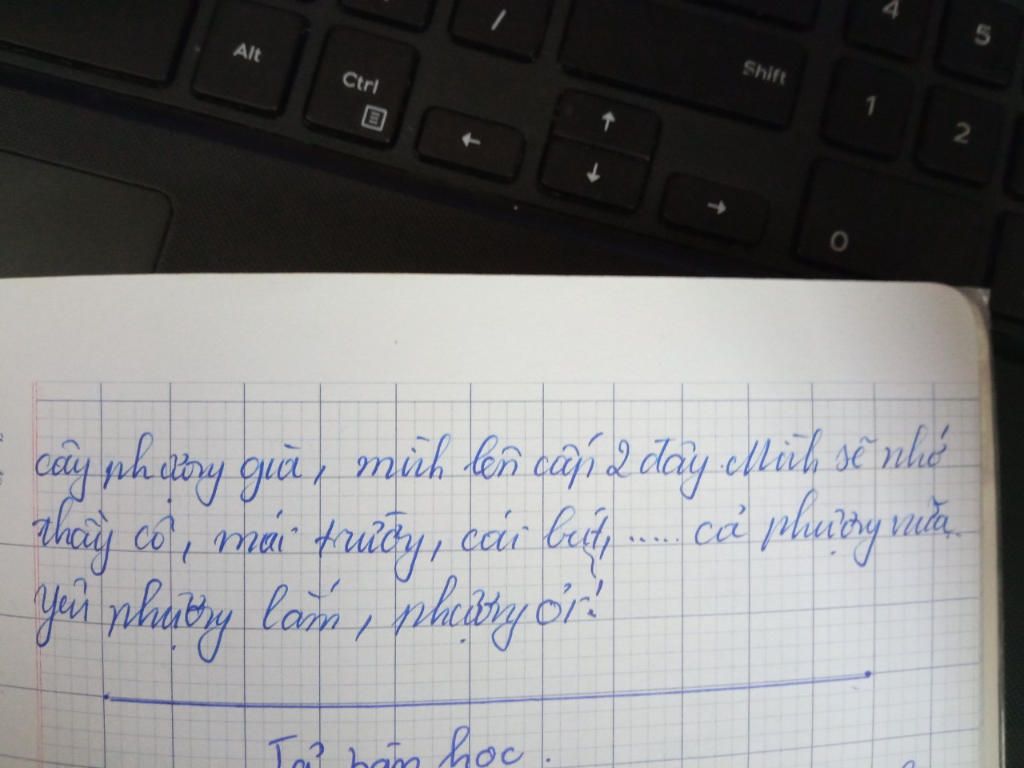 Alt
Ctrl
/
Shift
4
5
1
2
0
←
↑
↓
→
cây phượng già, mình lên cấp 2 đây. Mình sẽ nhớ
thầy cô, mái trường, cái bút, ..... cả phượng nữa.
yêu phượng lắm, phượng ơi!
Tả bàn học.